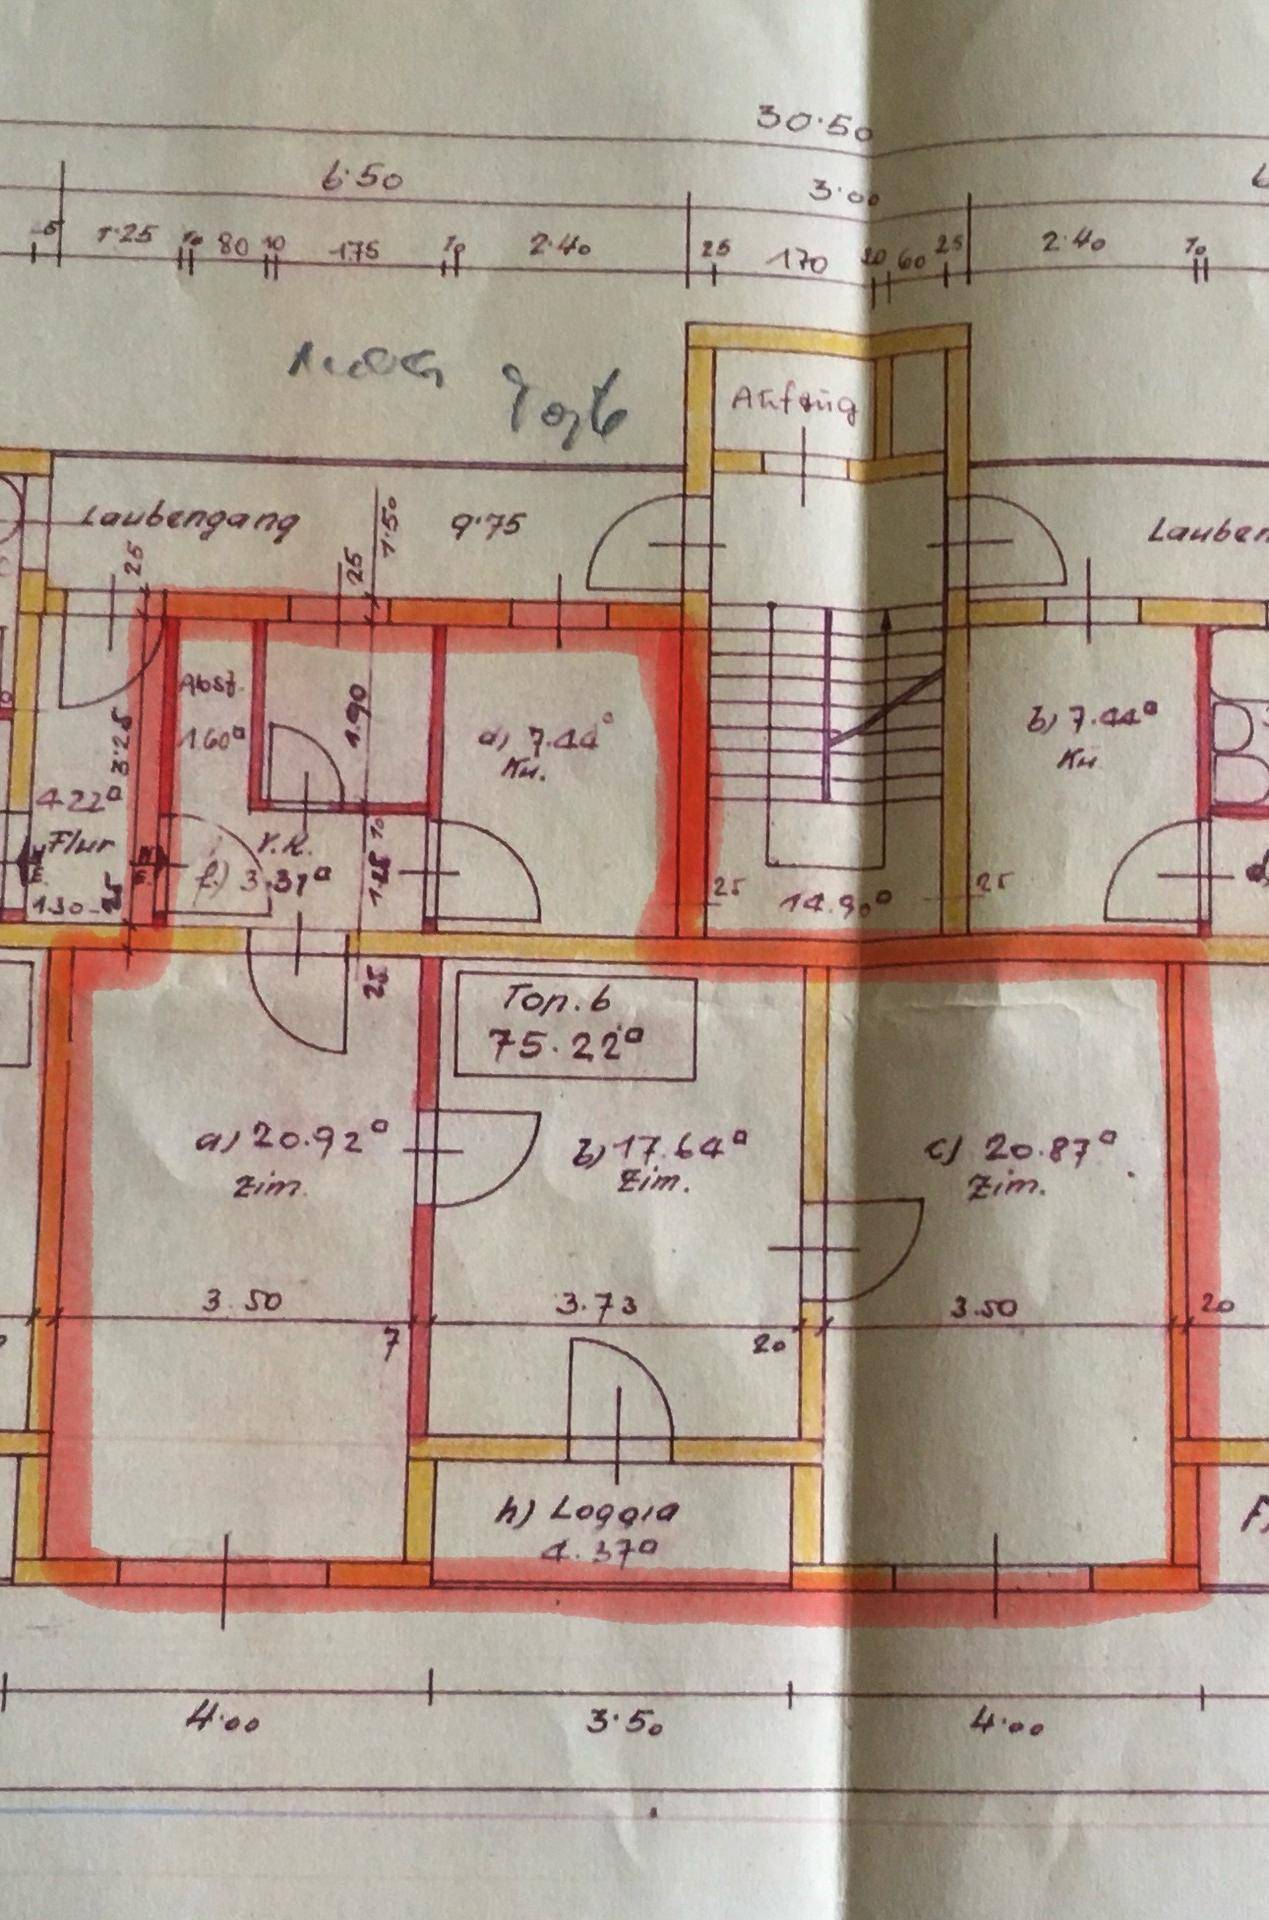 30.50
6.50
3.00
1.25
10
80
10
175
10
2.40
25
170
20
60
25
2.40
10
Aufzug
Laubengang
9.75
1.50
25
25
Abst.
1.60□
1.90
3.25
d) 7.44□
Kü.
b) 7.44□
Kü
4.22□
Flur
1.30
25
V.R.
f.) 3.37□
10
1.25
25
14.90□
25
25
Top.6
75.22□
a) 20.92□
Zim.
b) 17.64□
Zim.
c) 20.87□
Zim.
3.50
7
3.73
20
3.50
20
h) Loggia
4.37□
4.00
3.50
4.00